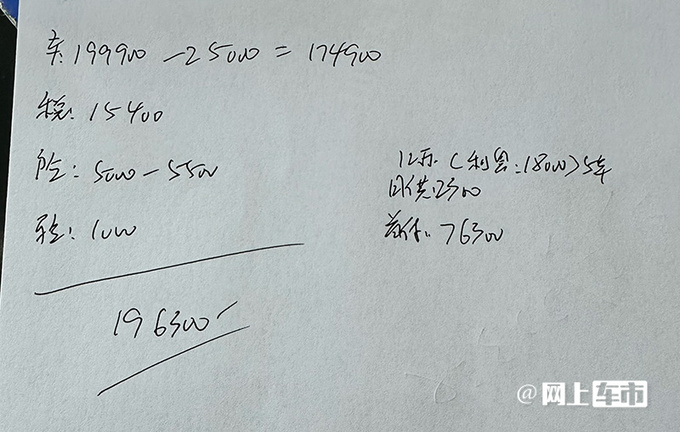 车:199900-25000=174900
税:15400
险:5000-5500
验:1000
196300
12万(利息:18000)5年
月供:2300
首付:76300
@网上车市